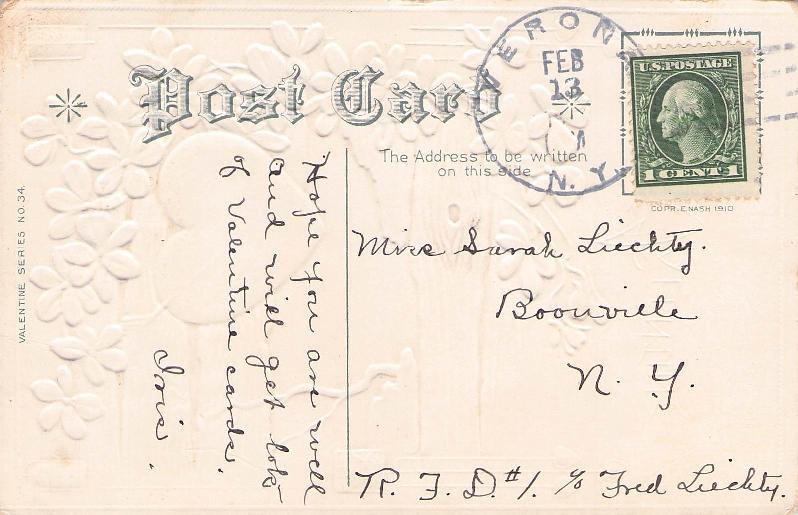 Post Card
VERONA
FEB
13
N. Y.
U.S. POSTAGE
1 CENT 1
The Address to be written
on this side
COPR. E. NASH 1910
VALENTINE SERIES NO. 34.
Hope you are well
and will get lots
of Valentine cards.
Iris.
Miss Sarah Liechty.
Boonville
N. Y.
R. F. D. #1. c/o Fred Liechty.